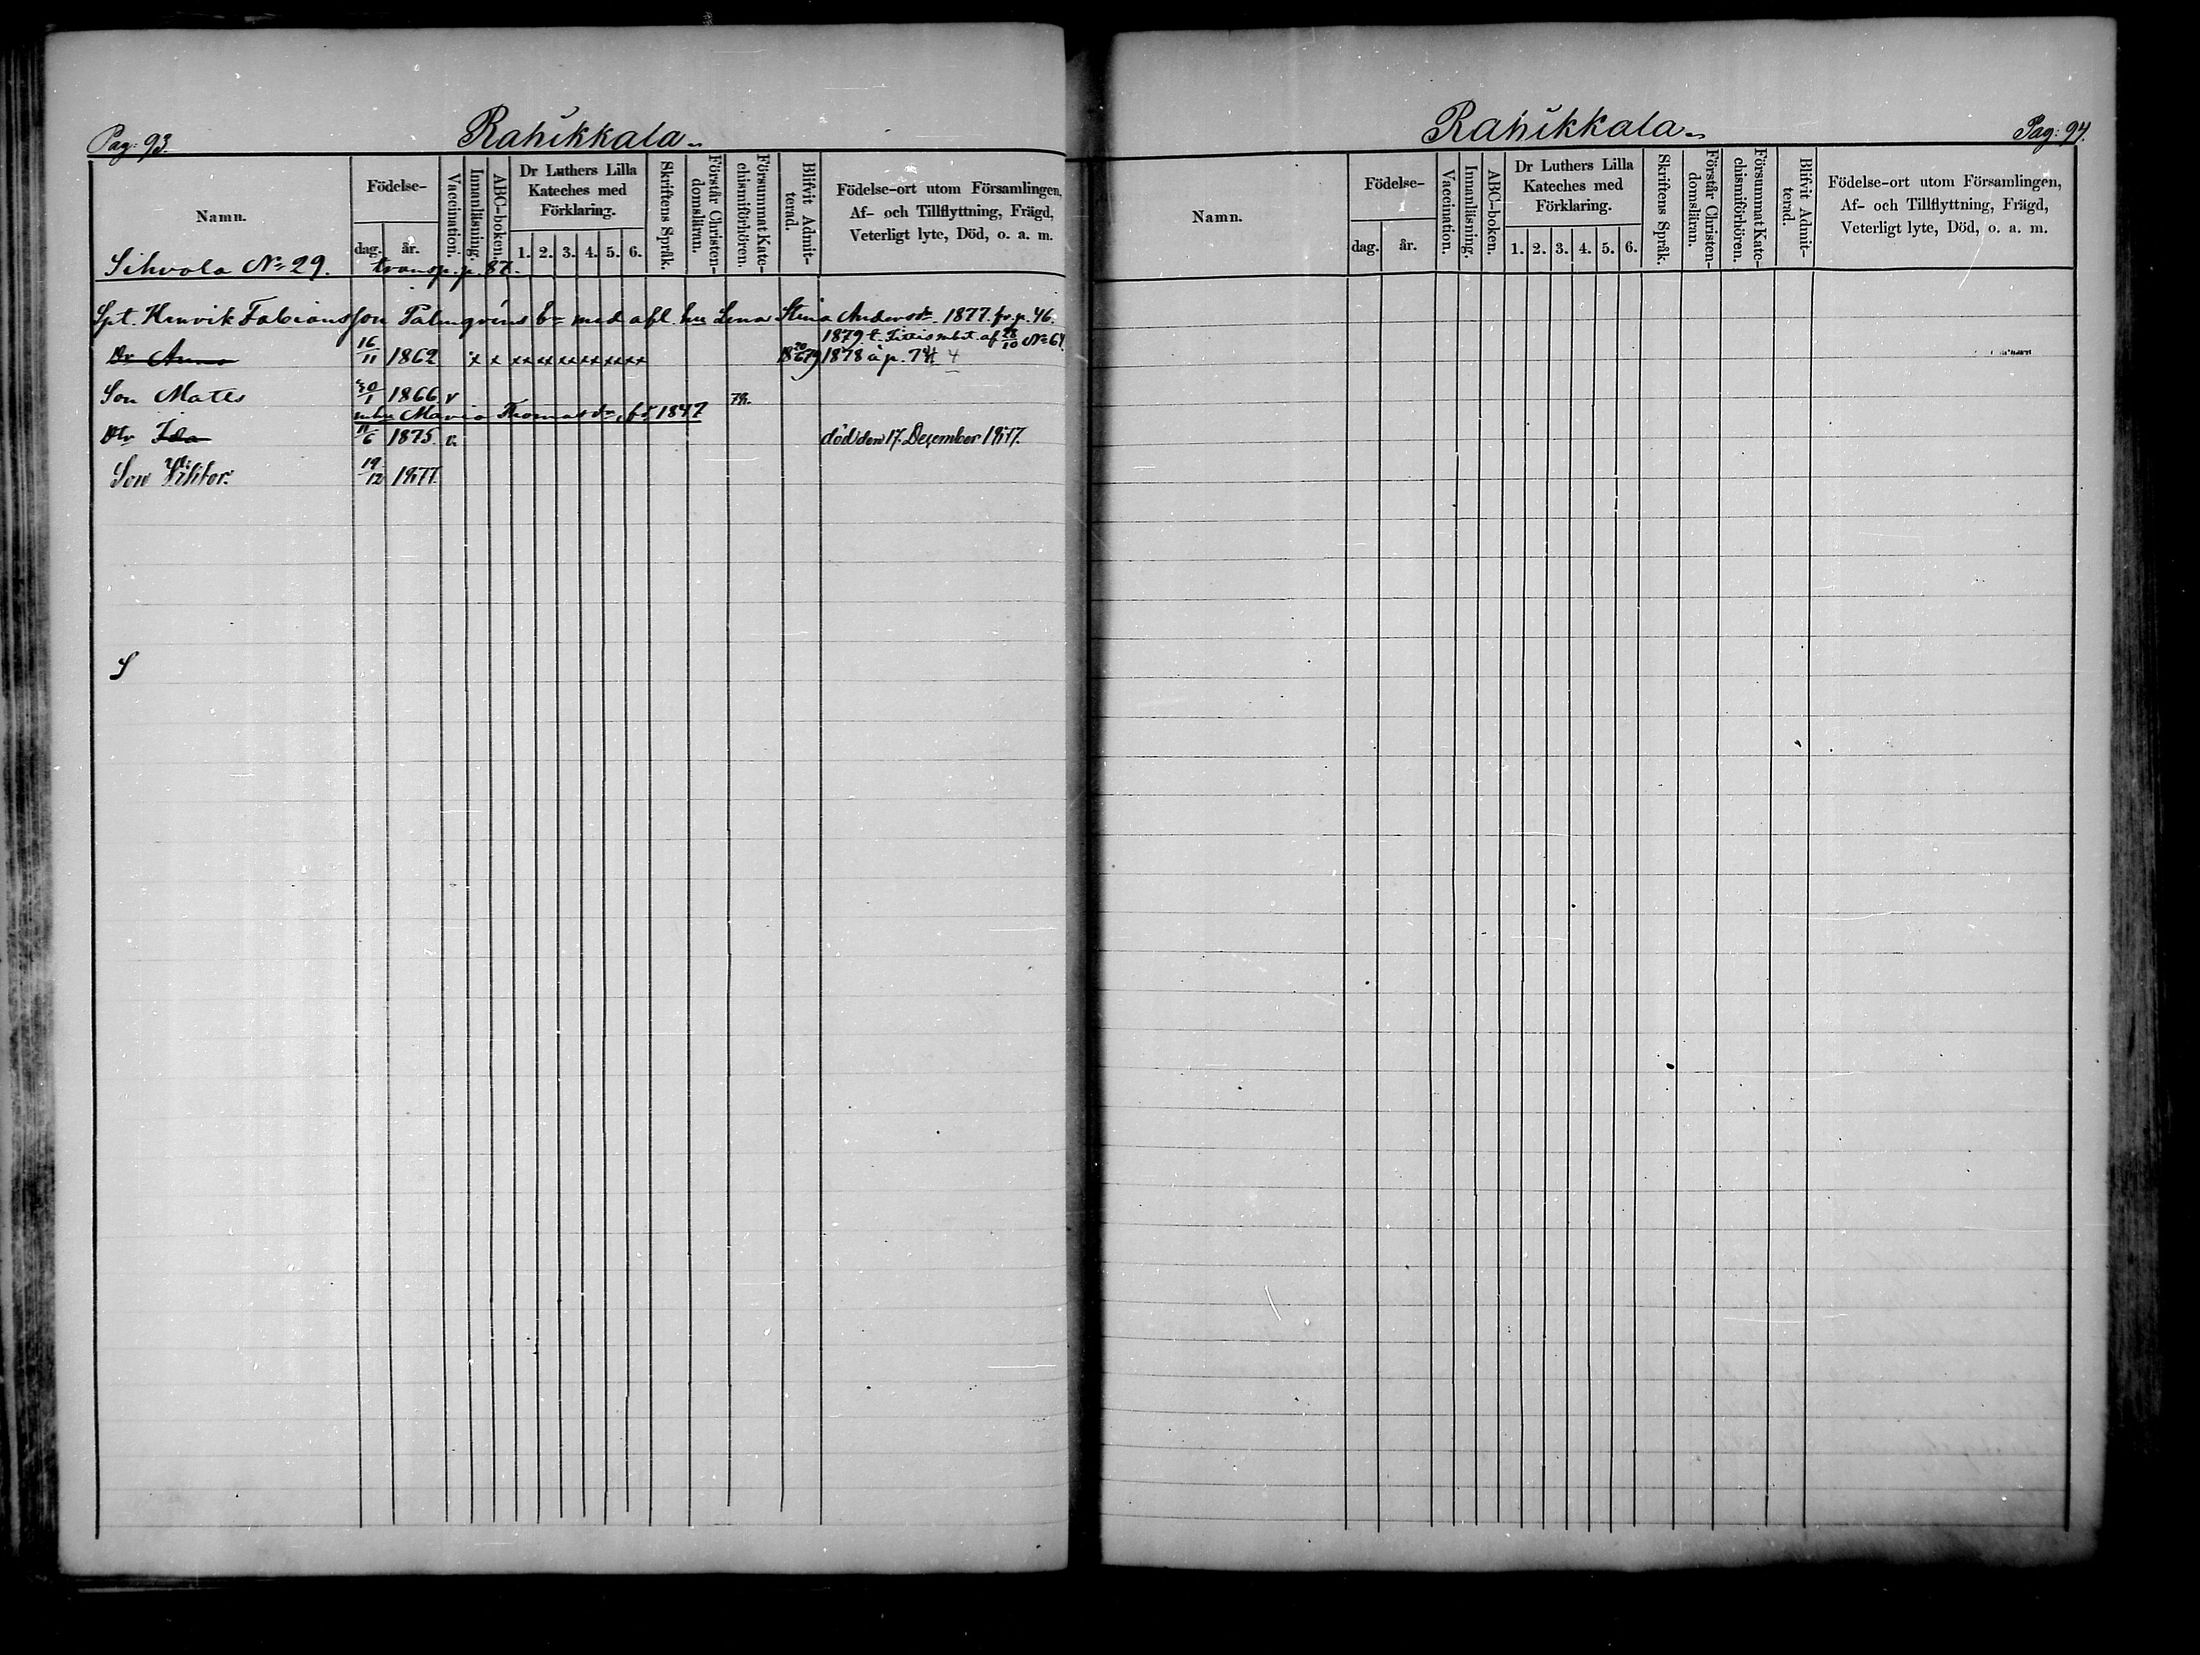 Pag: 93.
Rahikkala
Namn.
Födelse-
dag.
år.
Vaccination.
Innanläsning.
ABC-boken.
Dr Luthers Lilla
Kateches med
Förklaring.
1. 2. 3. 4. 5. 6.
Skriftens Språk.
Förstår Christen-
domsläran.
Försummat Kate-
chismiförhören.
Blifvit Admit-
terad.
Födelse-ort utom Församlingen,
Af- och Tillflyttning, Frägd,
Veterligt lyte, Död, o. a. m.
Sihvola No 29.
transp. p. 87.
Spt. Henrik Fabiansson Palmqvins bn med afl. hu Lena Stina Andersdr 1877. fr. p. 46.
1879 t. af 28/10 No 64
Dr Anna 16/11 1862 x x xx xx xx xx xx xx 20/6 1879 1878 å p. 74
Son Matts 30/1 1866 v 78.
Maria Thomasdr, fd 1847
Dtr Ida 11/6 1875. v. död den 17. December 1877.
Son Viktor. 19/12 1877.
S
Rahikkala
Pag: 94.
Namn.
Födelse-
dag.
år.
Vaccination.
Innanläsning.
ABC-boken.
Dr Luthers Lilla
Kateches med
Förklaring.
1. 2. 3. 4. 5. 6.
Skriftens Språk.
Förstår Christen-
domsläran.
Försummat Kate-
chismiförhören.
Blifvit Admit-
terad.
Födelse-ort utom Församlingen,
Af- och Tillflyttning, Frägd,
Veterligt lyte, Död, o. a. m.